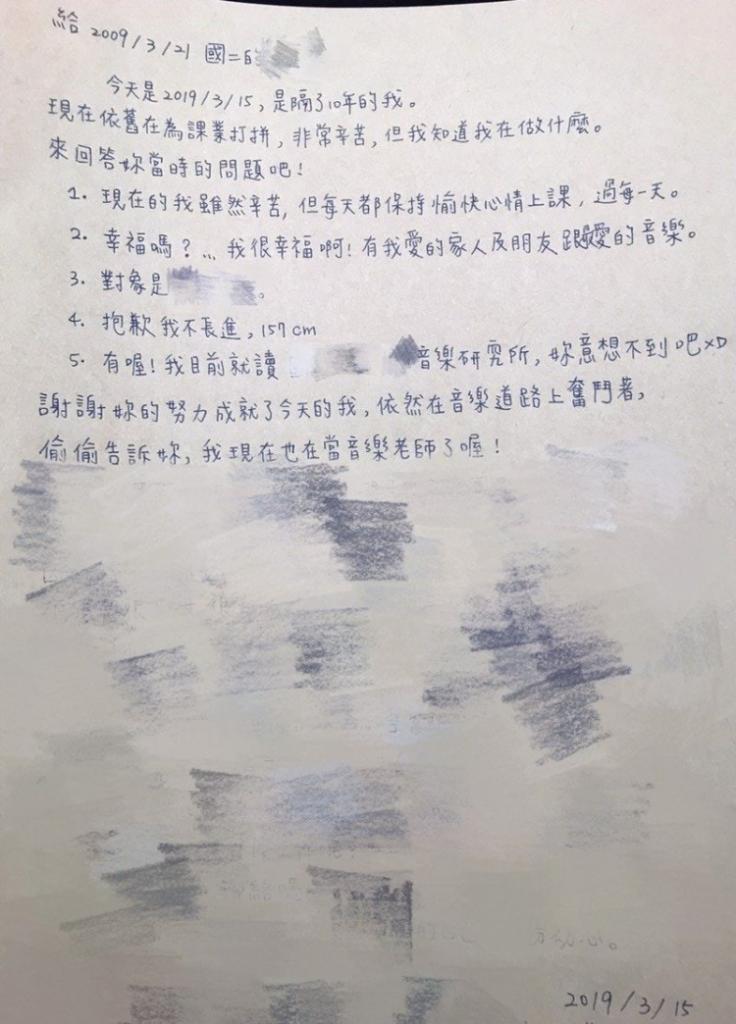 給 2009/3/21 國二的
今天是2019/3/15,是隔了10年的我。
現在依舊在為課業打拼,非常辛苦,但我知道我在做什麼。
來回答妳當時的問題吧!
1. 現在的我雖然辛苦,但每天都保持愉快心情上課,過每一天。
2. 幸福嗎?... 我很幸福啊!有我愛的家人及朋友跟愛的音樂。
3. 對象是 。
4. 抱歉我不長進,157cm
5. 有喔!我目前就讀 音樂研究所,妳意想不到吧XD
謝謝妳的努力成就了今天的我,依然在音樂道路上奮鬥著,
偷偷告訴妳,我現在也在當音樂老師了喔!
2019/3/15